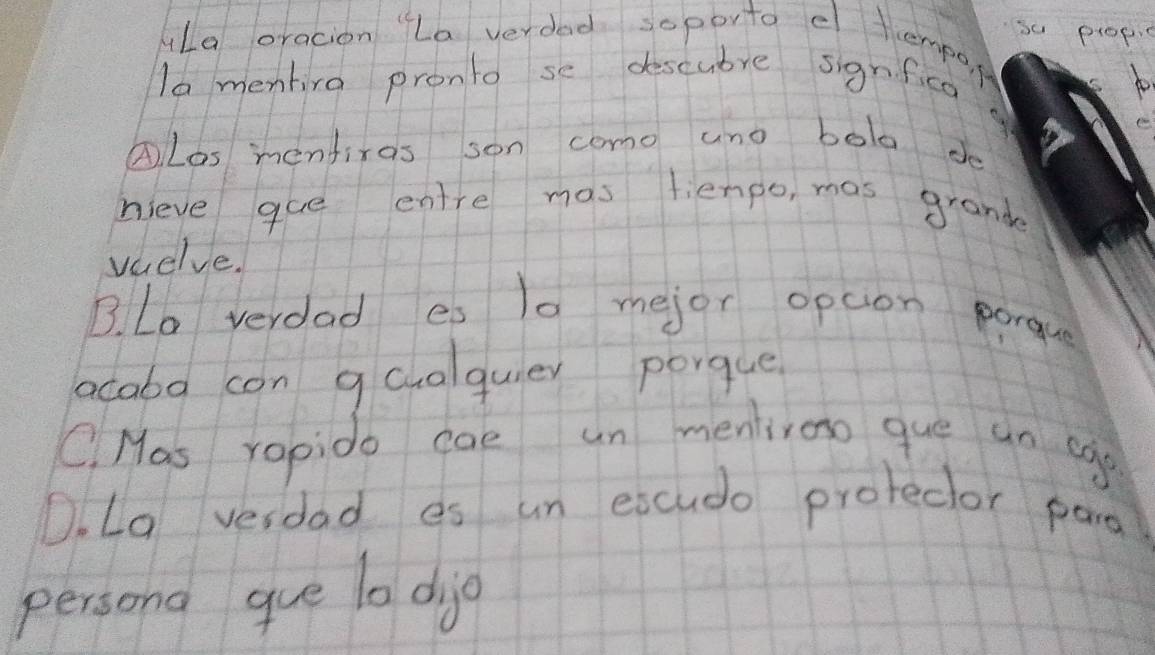 4La oracion "La verdad soporta el tiempo,
la mentira pronto se descubre significa
A. Las mentiras son como una bola de
nieve que entre mas tiempo, mas grande
vuelve.
B. La verdad es la mejor opcion porque
acaba con cualquier porque.
C. Mas rapido cae un mentiroso que un
D. La verdad es un escudo protector para
persona que la dijo
su propi